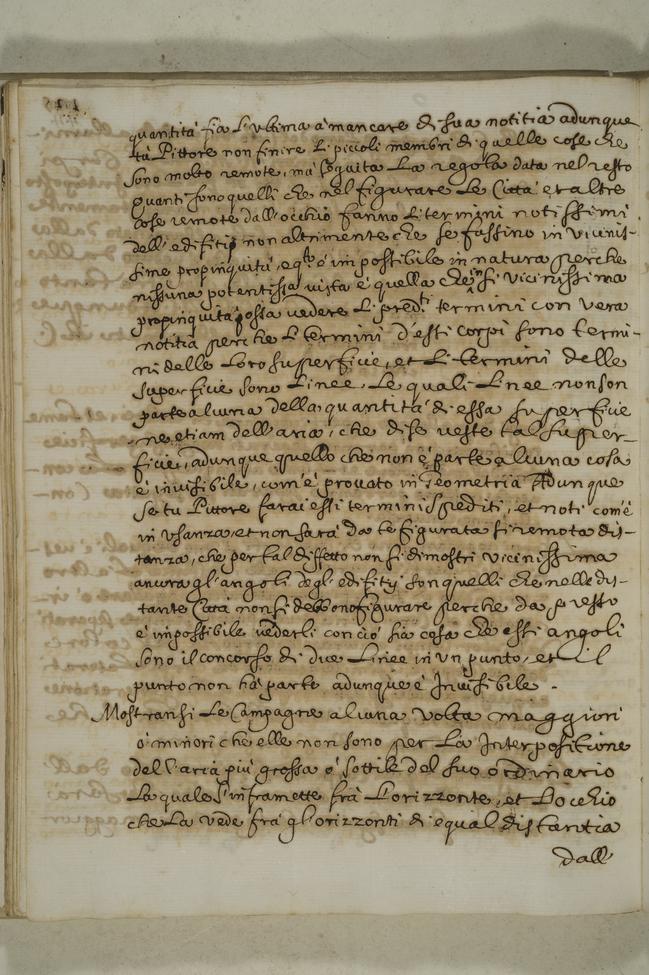 quantità sia l'ultima à mancare di sua notitia adunque
tù Pittore non finire li piccoli membri di quelle cose che
sono molto remote, mà seguita La regola data nel resto
quanti sono quelli che nel figurare Le Città et altre
cose remote dall'occhio fanno li termini notissimi
dell'edifitij non altrimente che se fossino in vicinis-
sime propinquità, e q.to è impossibile in natura perche
nissuna potentissa vista è quella che in si vicinissima
propinquità possa vedere Li pred.ti termini con vera
notitia perche Li termini d'esti corpi sono termi-
ni delle Loro superficie, et Li termini delle
superficie sono Linee Le quali Linee non son
parte aliuna della quantità di essa superficie
ne etiam dell'aria, che di se veste tal super-
ficie, adunque quello che non è parte aliuna cosa
è invisibile, com'è provato in Geometria Adunque
se tu Pittore farai essi termini spediti, et noti com'è
in usanza, et non sarà da te figurata si remota dis-
tanza, che per tal diffetto non si dimostri vicinissima
ancora gl'angoli degl'edifitij son quelli che nelle dis-
tante Città non si debbono figurare perche da presto
è impossibile vederli con ciò sia cosa che esti angoli
sono il concorso di due Linee in un punto, et il
punto non hà parte adunque è Invisibile.
Mostransi Le Campagne aliuna volta maggiori
ò minori che elle non sono per La Interpositione
del'aria più grossa ò sottile del suo ordinario
La quale s'inframette frà L'orizzonte, et Lo cchio
che La vede frà gl'orizzonti di equal distantia
dall